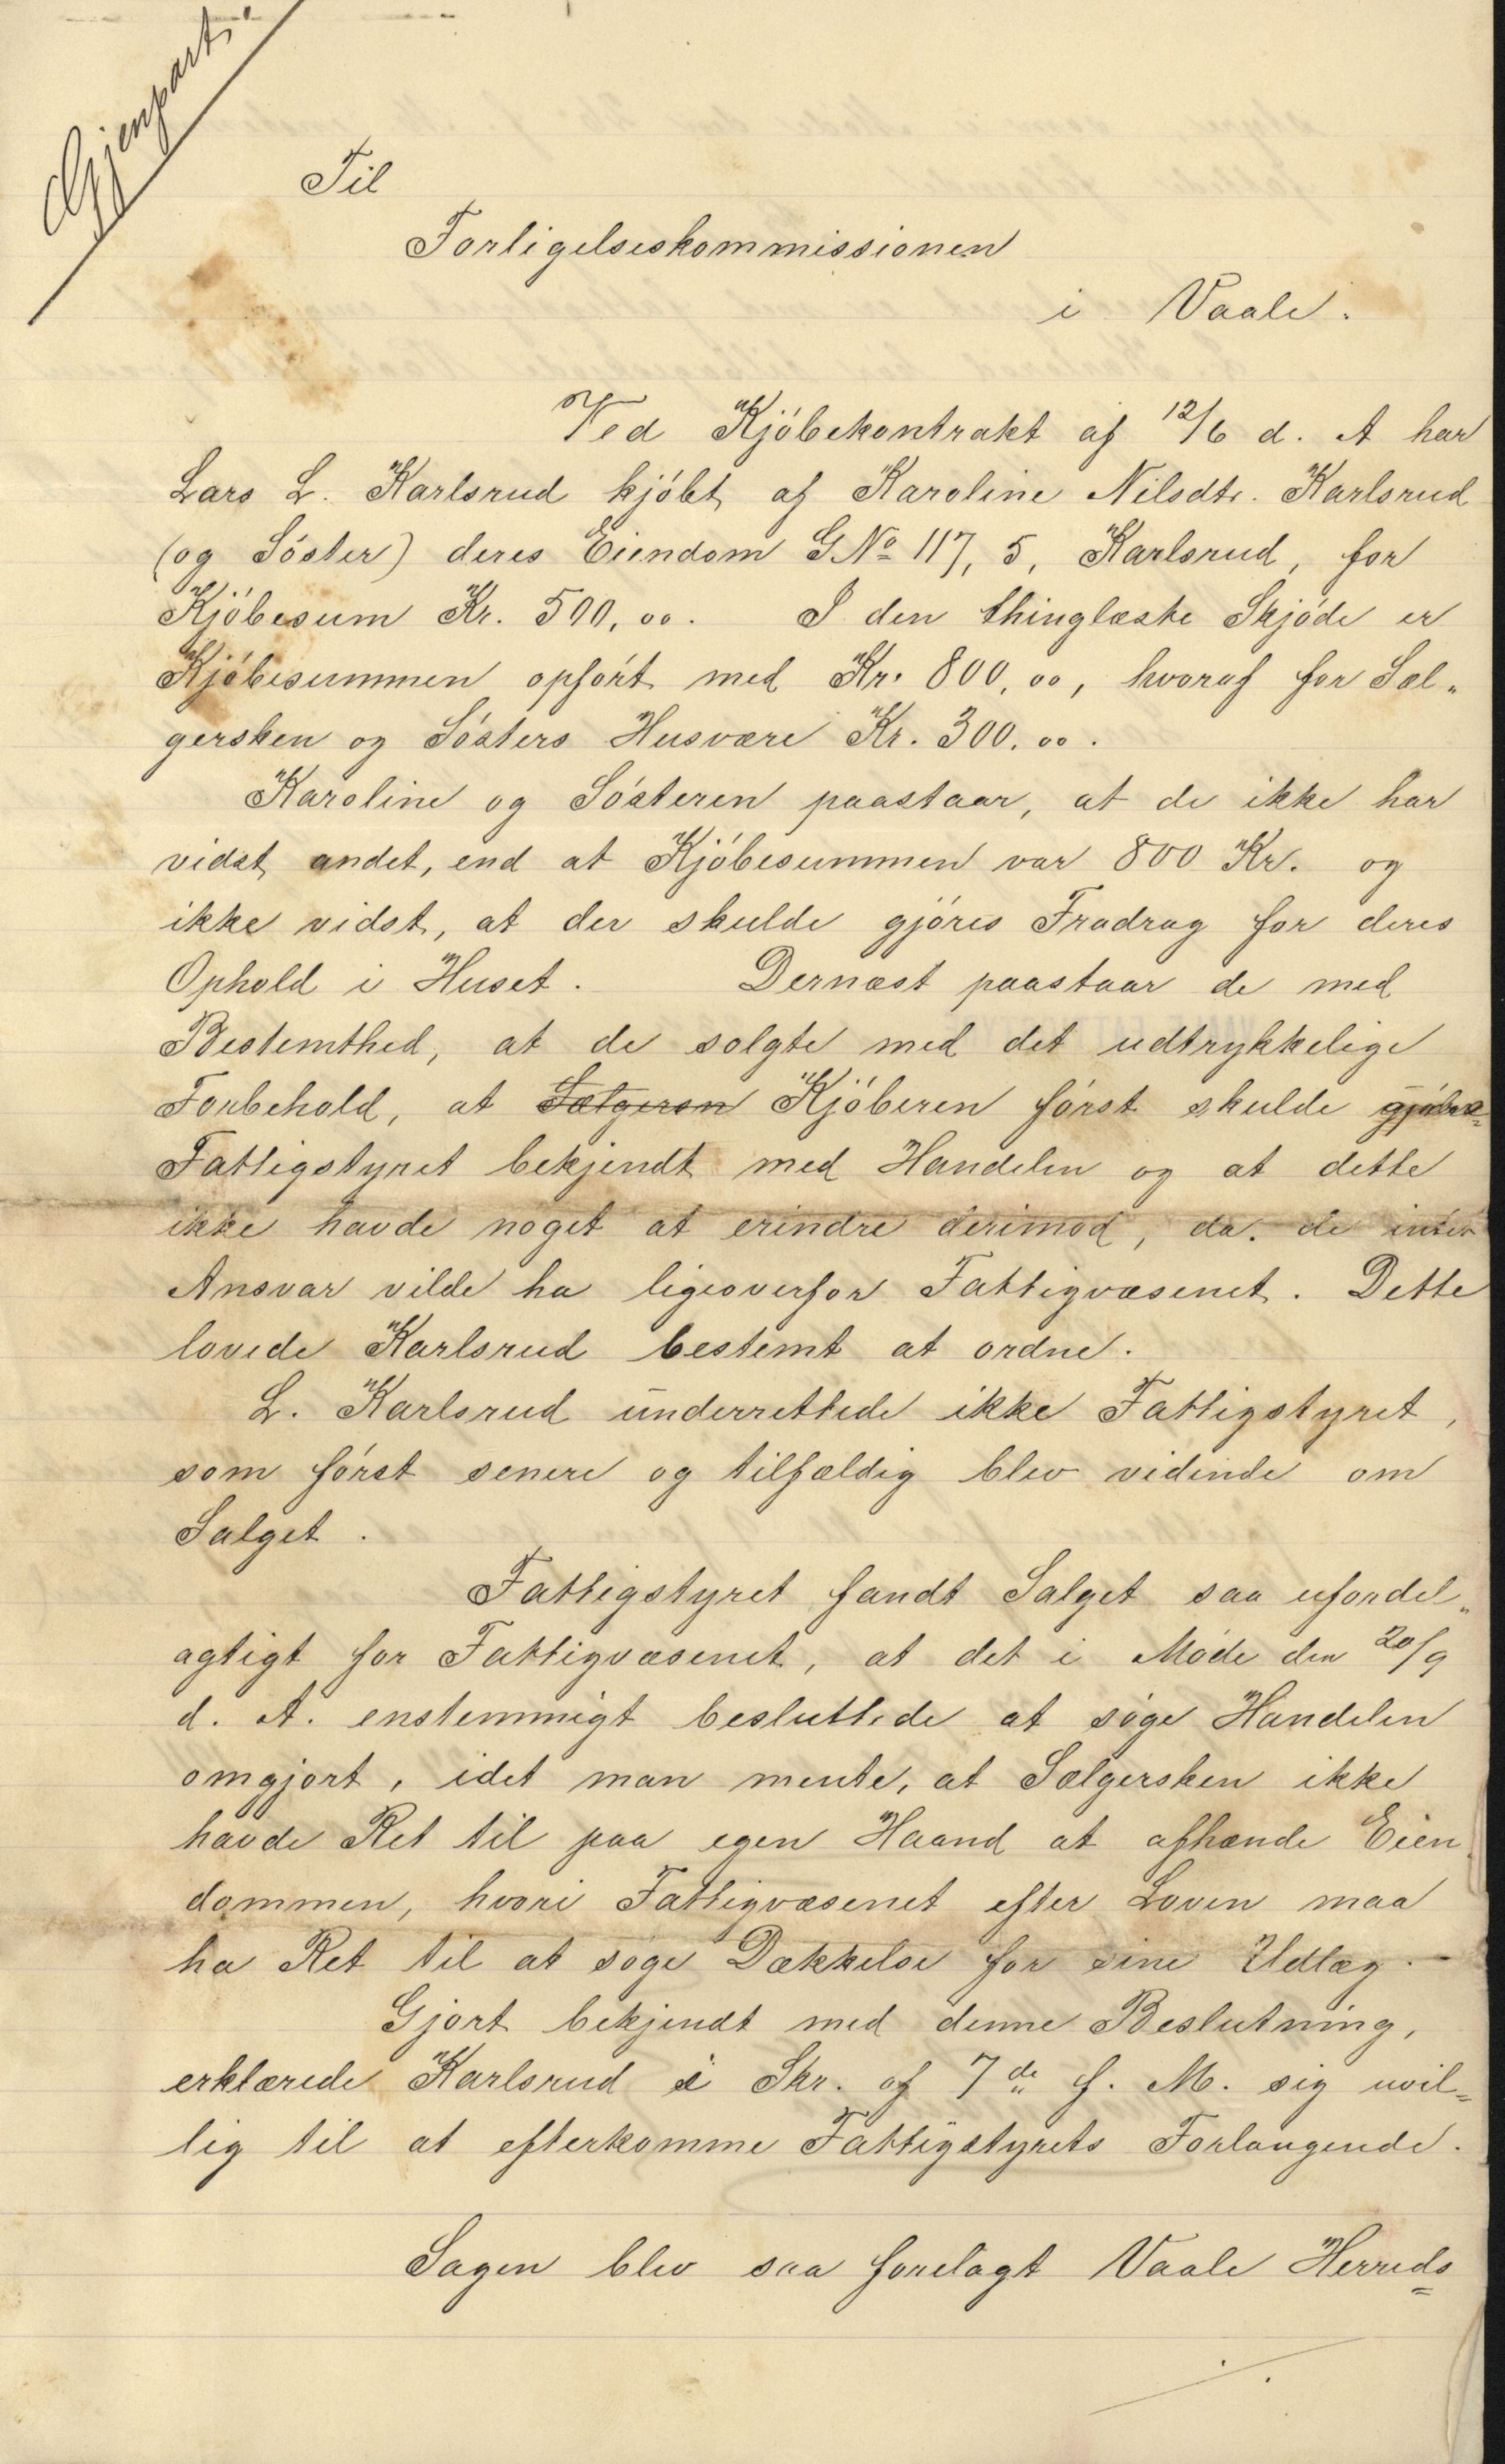 Gjenpart.
Til
Forligelseskommissionen
i Vaale.
Ved Kjøbekontrakt af 12/6 d. A har
Lars L. Karlsrud kjøbt af Karoline Nilsdtr. Karlsrud
(og Søster) deres Eiendom GNo 117, 5, Karlsrud, for
Kjøbesum Kr. 500,00. I den thinglæste Skjøde er
Kjøbesummen opført med Kr. 800,00, hvoraf for Sæl„
gersken og Søsters Husvære Kr. 300,00.
Karoline og Søsteren paastaar, at de ikke har
vidst andet, end at Kjøbesummen var 800 Kr. og
ikke vidst, at der skulde gjøres Fradrag for deres
Ophold i Huset. Dernæst paastaar de med
Bestemthed, at de solgte med det udtrykkelige
Forbehold, at Sælgeren Kjøberen først skulde
Fattigstyret bekjendt med Handelen og at dette
ikke havde noget at erindre derimod, da de intet
Ansvar vilde ha ligeoverfor Fattigvæsenet. Dette
lovede Karlsrud bestemt at ordne.
L. Karlsrud underrettede ikke Fattigstyret,
som først senere og tilfældig blev vidende om
Salget.
Fattigstyret fandt Salget saa ufordel„
agtigt for Fattigvæsenet, at det i Møde den 20/9
d. A. enstemmigt besluttede at søge Handelen
omgjort, idet man mente, at Sælgersken ikke
havde Ret til paa egen Haand at afhænde Eien
dommen, hvori Fattigvæsenet efter Loven maa
ha Ret til at søge Dækkelse for sine Udlæg.
Gjort bekjendt med denne Beslutning,
erklærede Karlsrud i Skr. af 7de f. M. sig uvil=
lig til at efterkomme Fattigstyrets Forlangende.
Sagen blev saa forelagt Vaale Herreds=